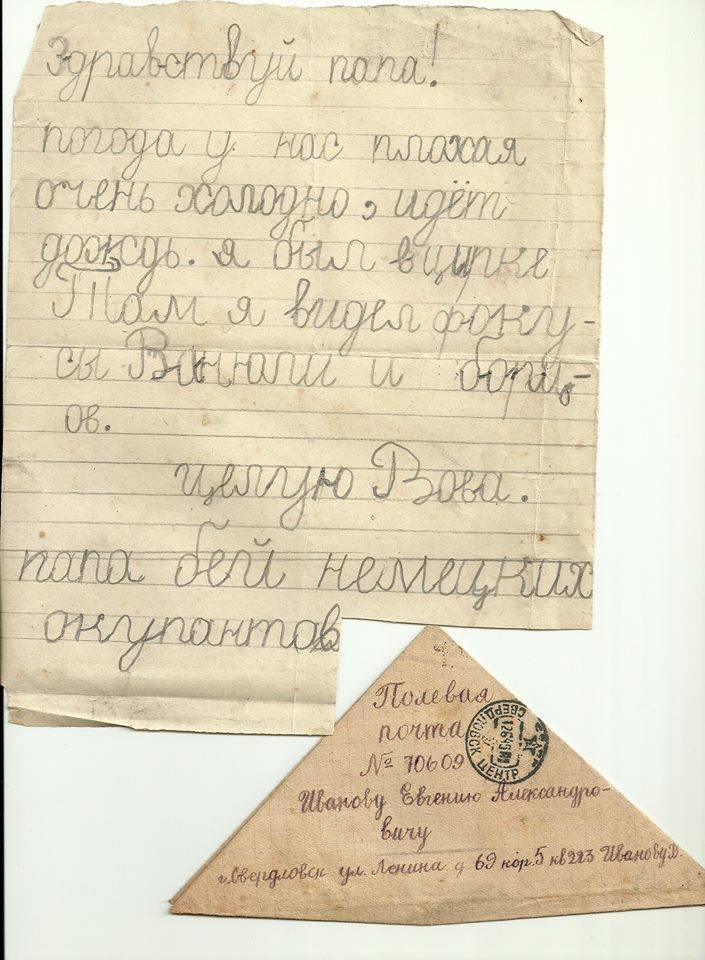 Здравствуй папа!
погода у нас плахая
очень холодно, идёт
дождь. я был в цирке
Там я видел фоку-
сы и борц-
ов.
целую Вова.
папа бей немецких
окупантов
Полевая
почта
№ 70609
Иванову Евгению Александро-
вичу
г. Свердловск ул. Ленина д 69 кор. 5 кв 223 Иванову В.
СВЕРДЛОВСК ЦЕНТР